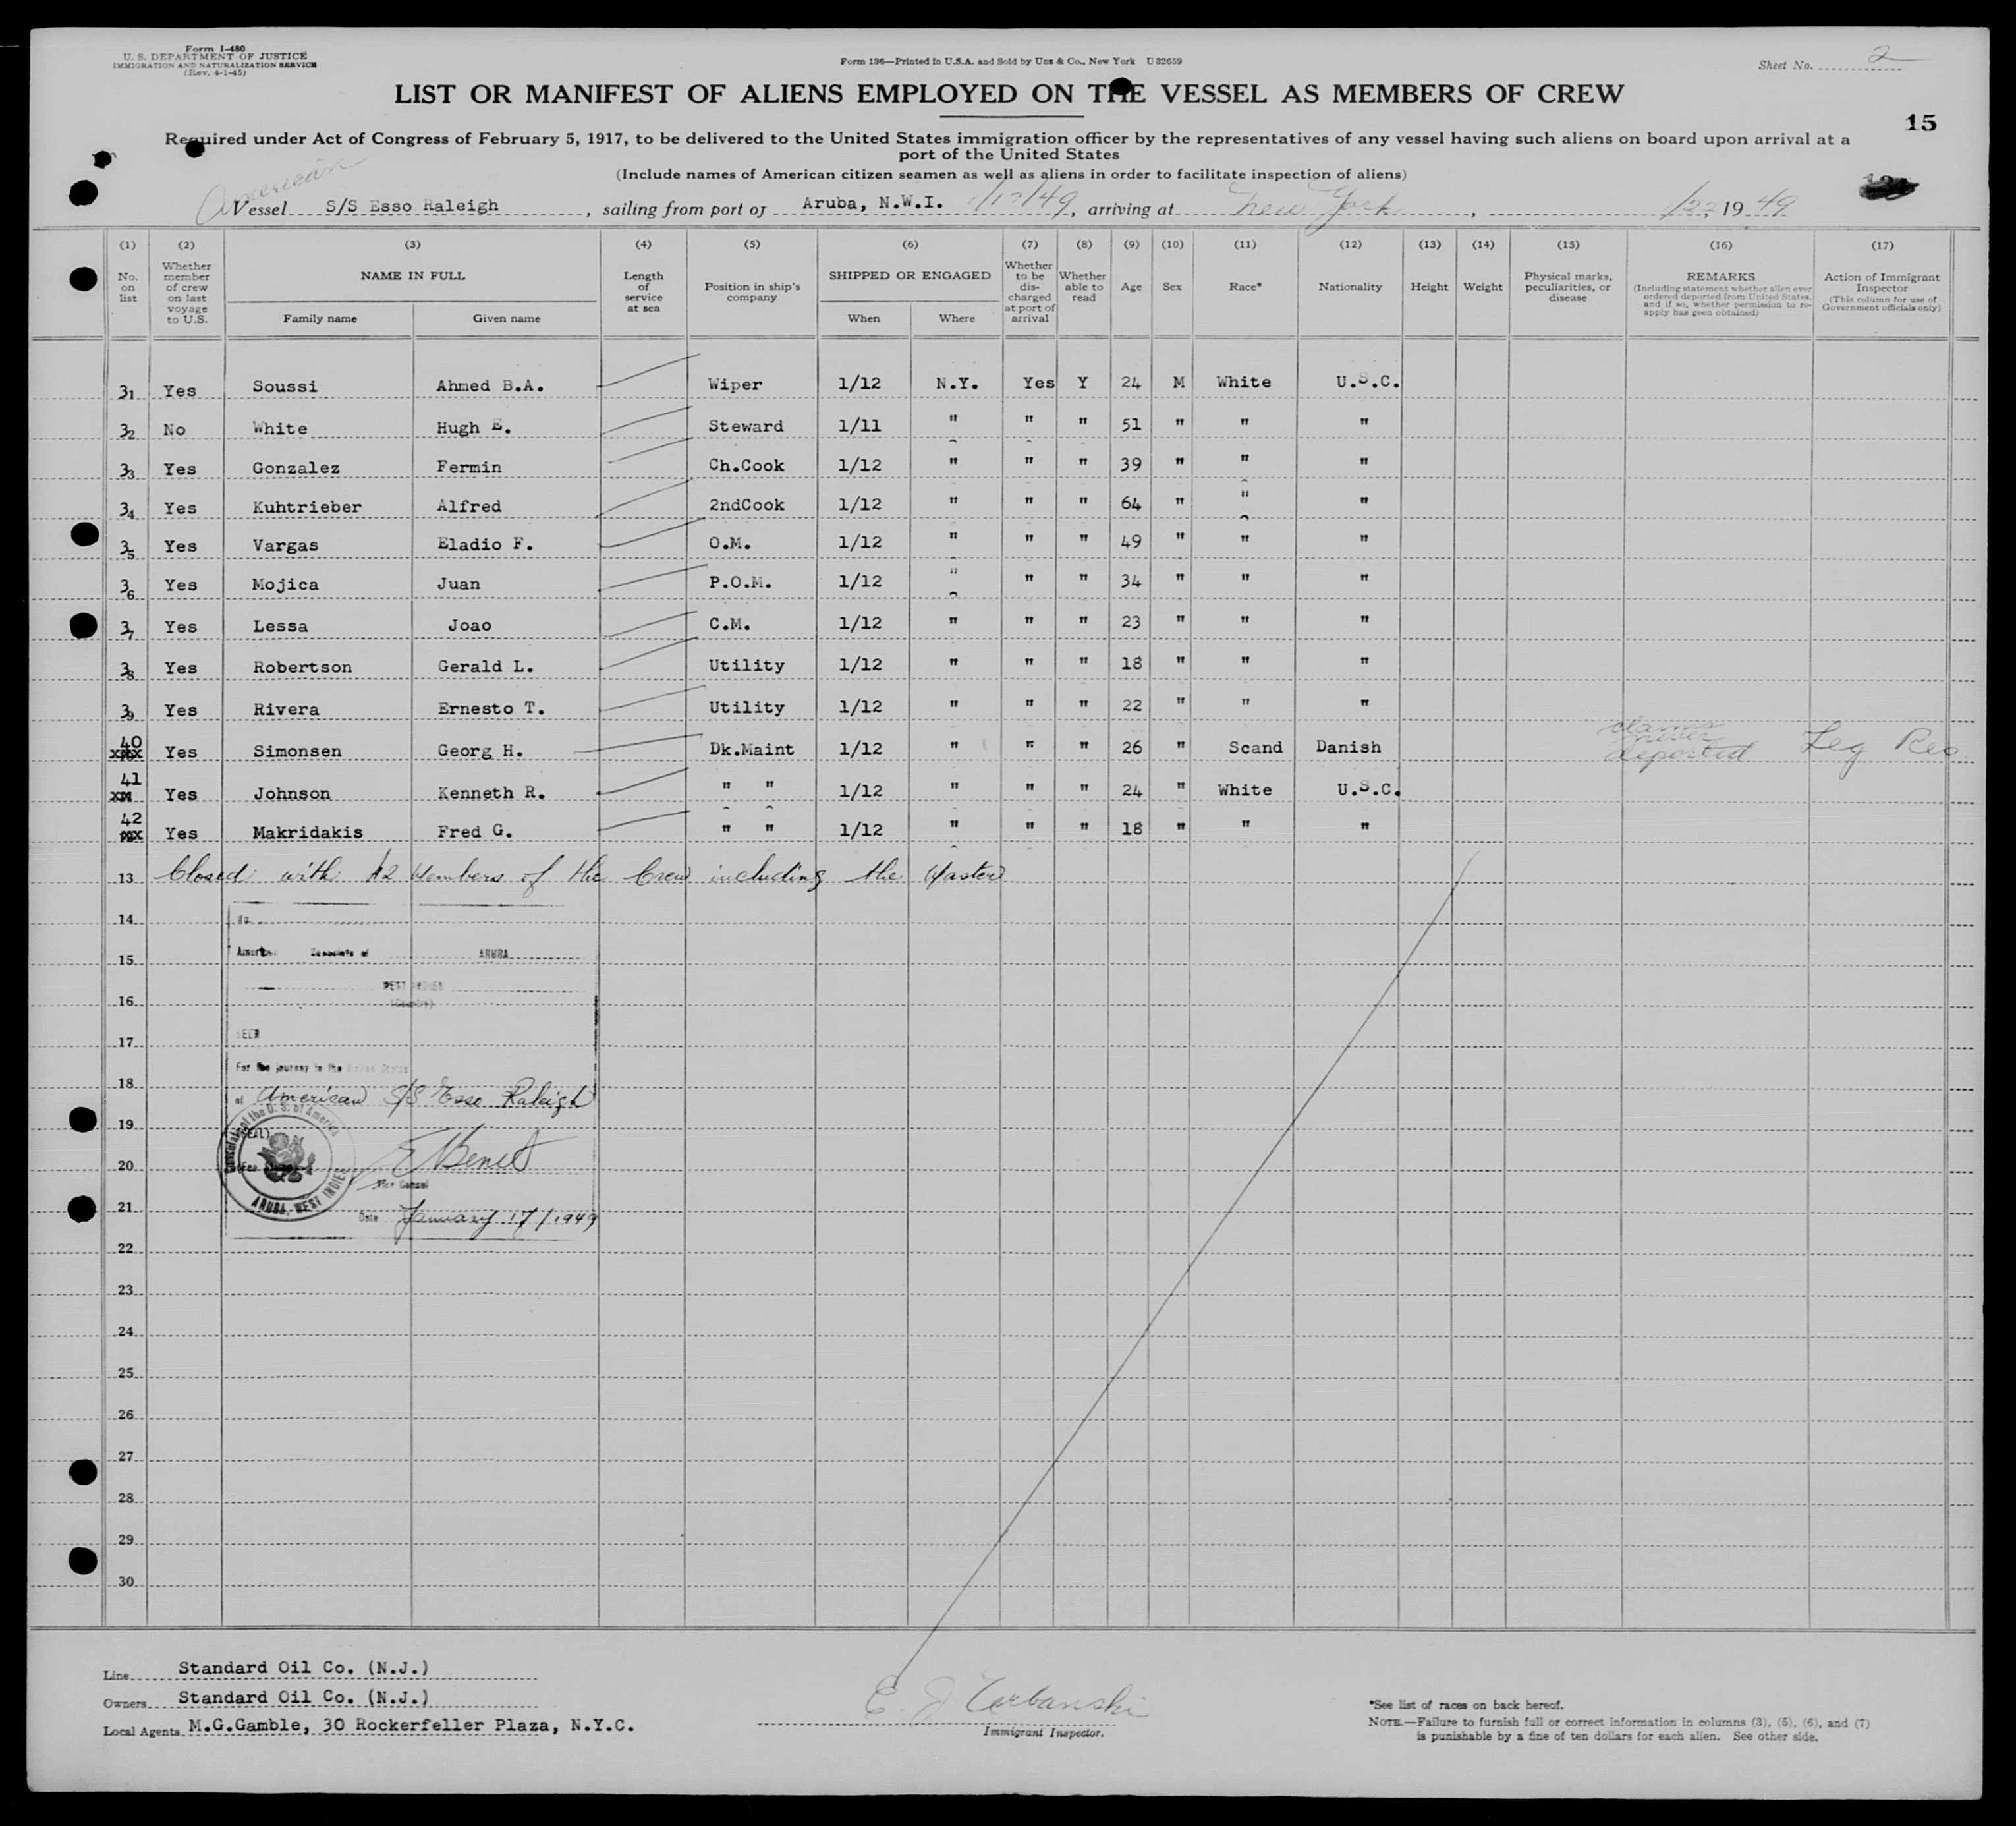 Form I-480
U. S. DEPARTMENT OF JUSTICE
IMMIGRATION AND NATURALIZATION SERVICE
(Rev. 4-1-45)
Form 136—Printed in U.S.A. and Sold by Unz & Co., New York U 32639
Sheet No. 2
LIST OR MANIFEST OF ALIENS EMPLOYED ON THE VESSEL AS MEMBERS OF CREW
15
Required under Act of Congress of February 5, 1917, to be delivered to the United States immigration officer by the representatives of any vessel having such aliens on board upon arrival at a
port of the United States
(Include names of American citizen seamen as well as aliens in order to facilitate inspection of aliens)
American
Vessel S/S Esso Raleigh, sailing from port of Aruba, N.W.I. 1/17/49, arriving at New York, 1/22, 19 49
(1) (2) (3) (4) (5) (6) (7) (8) (9) (10) (11) (12) (13) (14) (15) (16) (17)
No. on list
Whether member of crew on last voyage to U.S.
NAME IN FULL
Family name Given name
Length of service at sea
Position in ship's company
SHIPPED OR ENGAGED
When Where
Whether to be discharged at port of arrival
Whether able to read
Age
Sex
Race*
Nationality
Height
Weight
Physical marks, peculiarities, or disease
REMARKS
(Including statement whether alien ever ordered deported from United States, and if so, whether permission to reapply has geen obtained)
Action of Immigrant Inspector
(This column for use of Government officials only)
31 Yes Soussi Ahmed B.A. Wiper 1/12 N.Y. Yes Y 24 M White U.S.C.
32 No White Hugh E. Steward 1/11 " " " 51 " " "
33 Yes Gonzalez Fermin Ch.Cook 1/12 " " " 39 " " "
34 Yes Kuhtrieber Alfred 2ndCook 1/12 " " " 64 " " "
35 Yes Vargas Eladio F. O.M. 1/12 " " " 49 " " "
36 Yes Mojica Juan P.O.M. 1/12 " " " 34 " " "
37 Yes Lessa Joao C.M. 1/12 " " " 23 " " "
38 Yes Robertson Gerald L. Utility 1/12 " " " 18 " " "
39 Yes Rivera Ernesto T. Utility 1/12 " " " 22 " " "
40 Yes Simonsen Georg H. Dk.Maint 1/12 " " " 26 " Scand Danish claims never deported Leg Res
41 Yes Johnson Kenneth R. " " 1/12 " " " 24 " White U.S.C.
42 Yes Makridakis Fred G. " " 1/12 " " " 18 " " "
13 Closed with 42 Members of the Crew including the Master
14
No.
15
ARUBA
WEST INDIES
16
(Country)
SEEN
17
For the journey to the United States
18
of American S/S Esso Raleigh
19
(SEAL)
Consulate of the U. S. of America
ARUBA, WEST INDIES
20
Vice Consul
21
Date January 17/1949
22
23
24
25
26
27
28
29
30
Line Standard Oil Co. (N.J.)
Owners Standard Oil Co. (N.J.)
Local Agents M.G.Gamble, 30 Rockerfeller Plaza, N.Y.C.
E. J. Urbanski
Immigrant Inspector.
*See list of races on back hereof.
NOTE.—Failure to furnish full or correct information in columns (3), (5), (6), and (7)
is punishable by a fine of ten dollars for each alien. See other side.